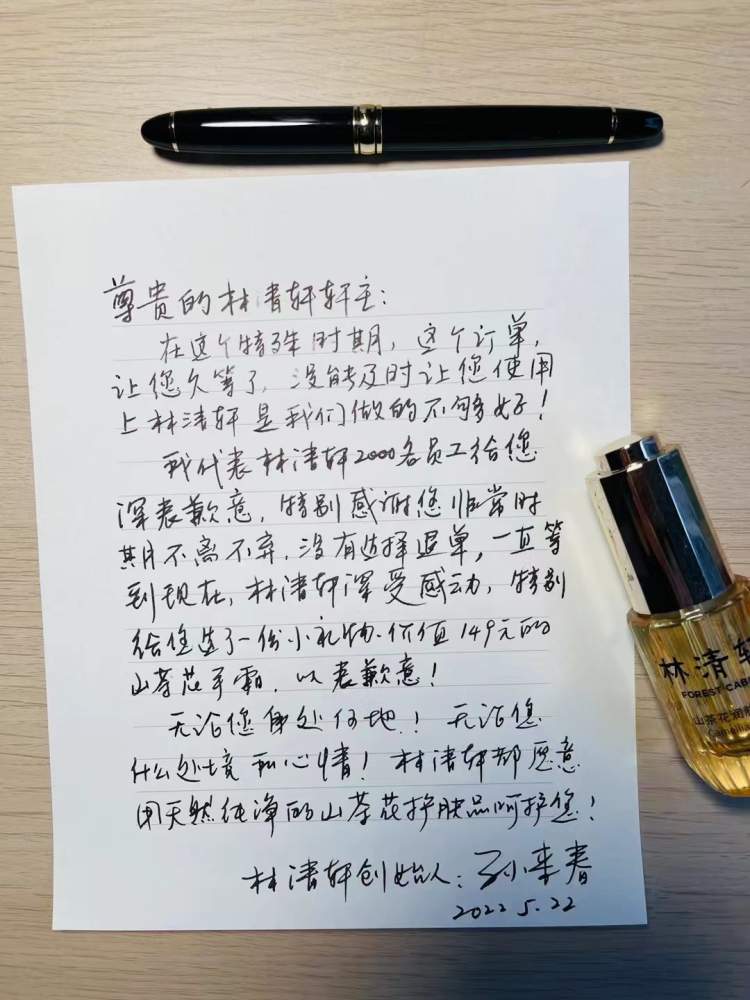 尊贵的林清轩轩主：
在这个特殊时期，这个订单，
让您久等了，没能及时让您使用
上林清轩是我们做的不够好！
我代表林清轩2000名员工给您
深表歉意，特别感谢您非常时
期不离不弃，没有选择退单，一直等
到现在，林清轩深受感动，特别
给您送了一份小礼物、价值149元的
山茶花手霜，以表歉意！
无论您身处何地！无论您
什么处境和心情！林清轩都愿意
用天然纯净的山茶花护肤品呵护您！
林清轩创始人：孙来春
2022 5.22
林清轩
FOREST CAB
山茶花润
Camel